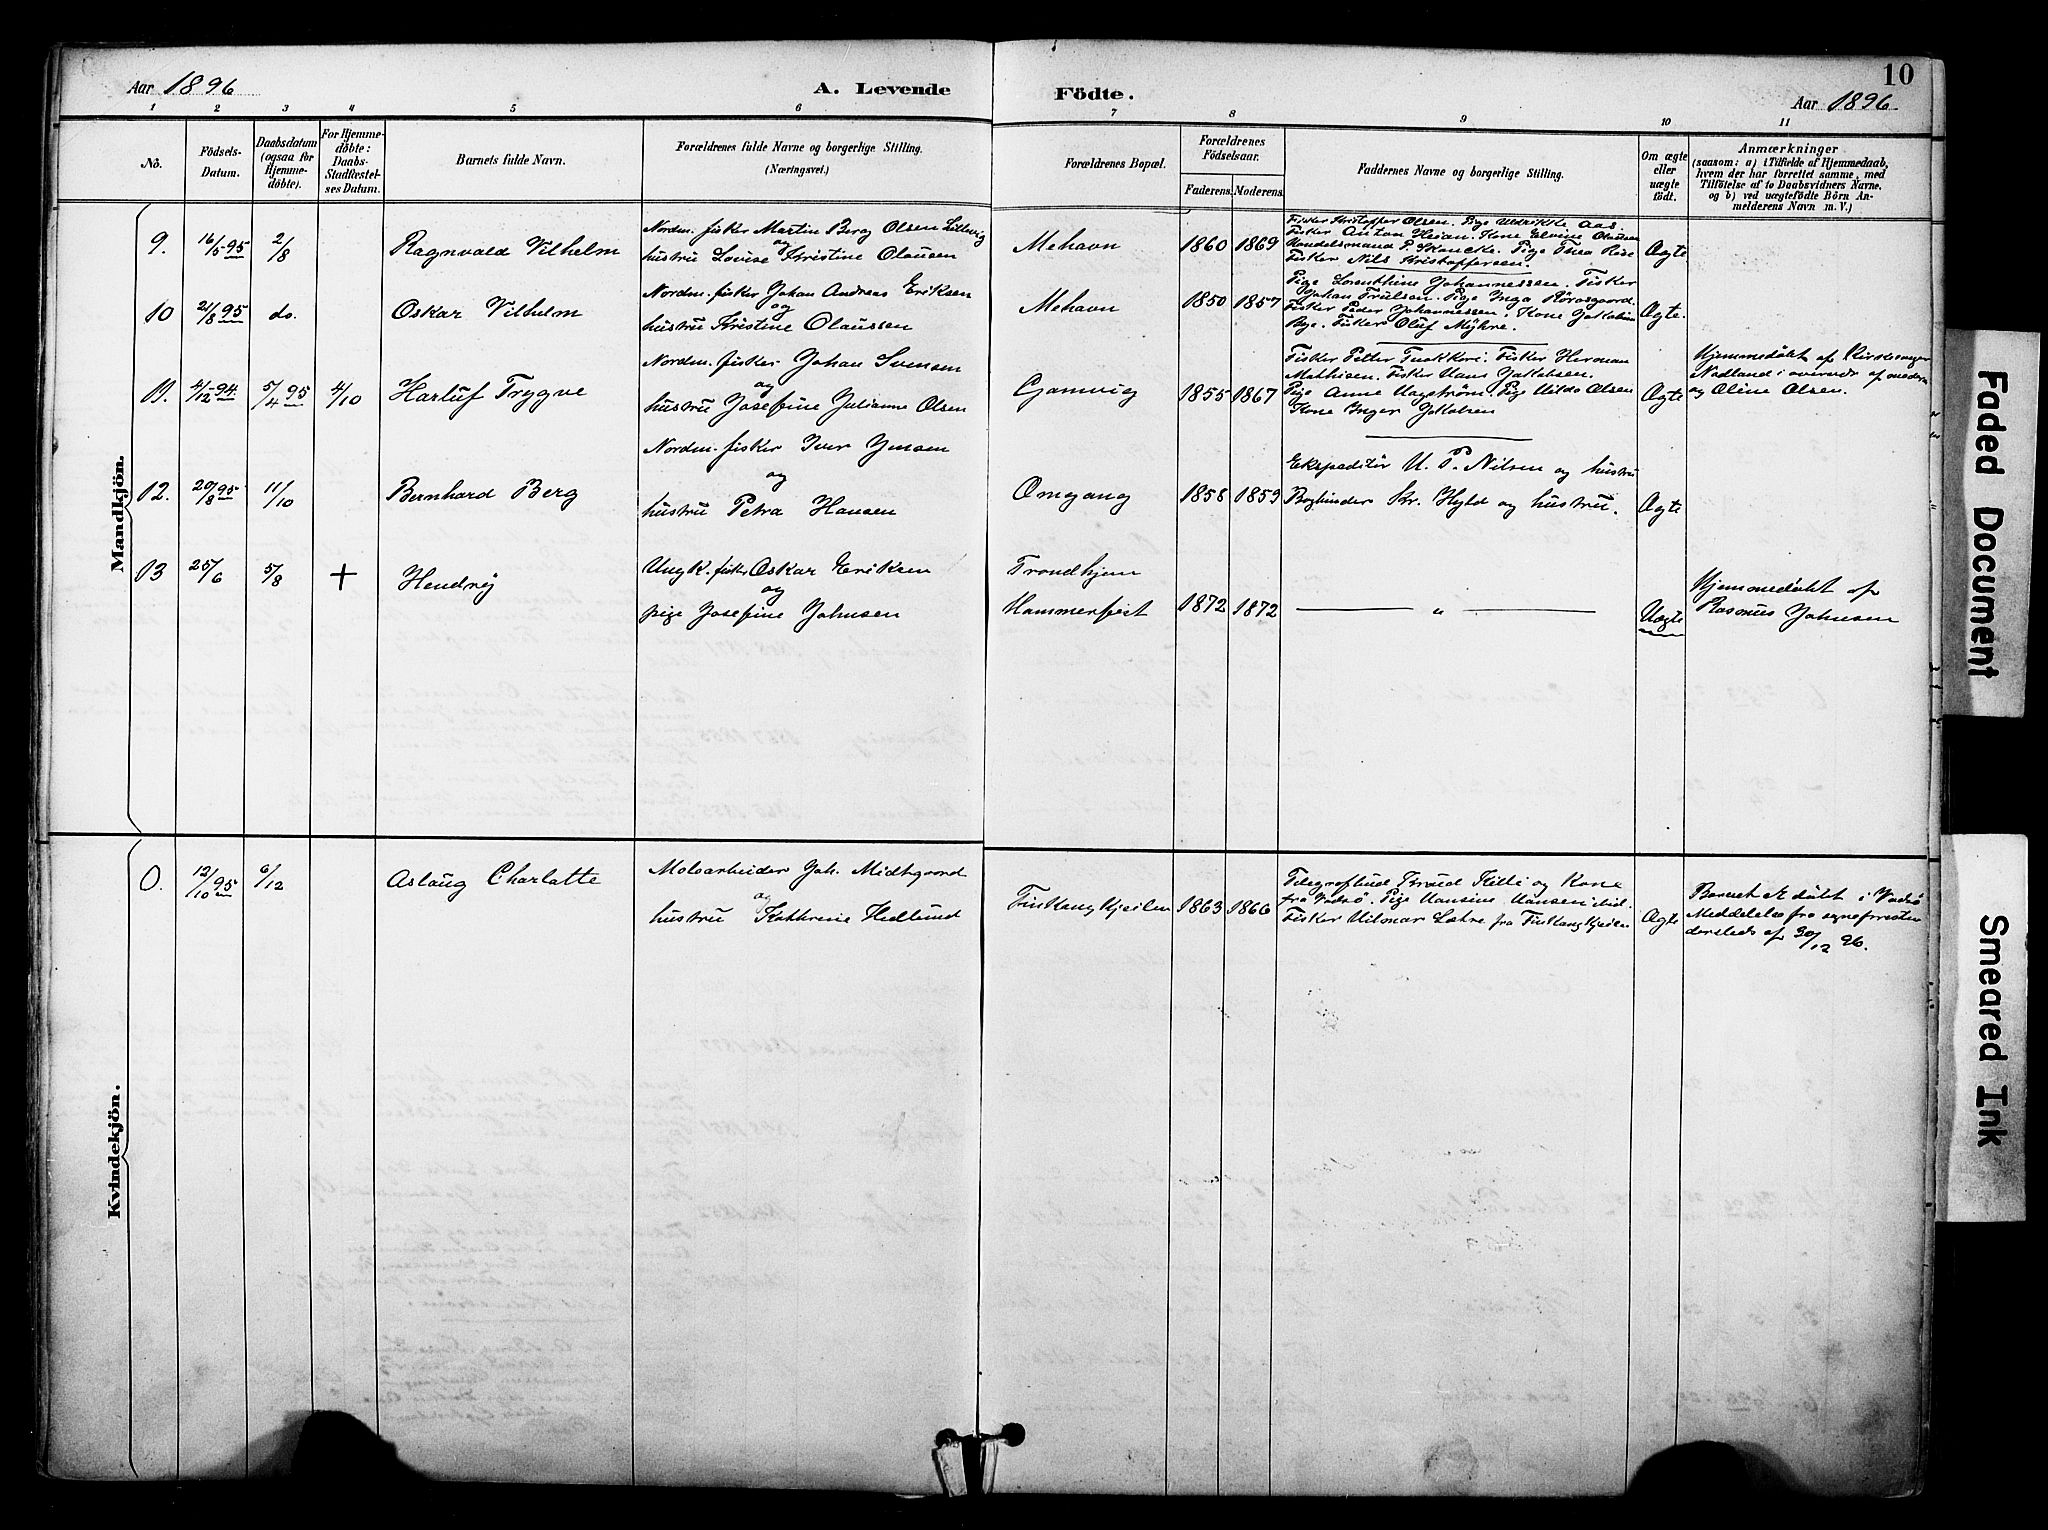 Aar 1896
A. Levende Födte.
Aar 1896
10
1 2 3 4 5 6 7 8 9 10 11
No.
Födsels-
Datum.
Daabsdatum
(ogsaa for
Hjemme-
döbte).
For Hjemme-
döbte:
Daabs-
Stadfæstel-
ses Datum.
Barnets fulde Navn.
Forældrenes fulde Navne og borgerlige Stilling.
(Næringsvei.)
Forældrenes Bopæl.
Forældrenes
Födselsaar.
Faderens. Moderens.
Faddernes Navne og borgerlige Stilling.
Om ægte
eller
uægte
födt.
Anmærkninger
(saasom: a) i Tilfælde af Hjemmedaab,
hvem der har forrettet samme, med
Tilföielse af to Daabsvidners Navne,
og b) ved uægtefödte Börn An-
melderens Navn m. V.)
Mandkjön.
9. 16/5 95 2/8 Ragnvald Vilhelm
Nordm. fisker Martin Berg Olsen
og
hustru Lovise Kristine Olausen
Mehavn 1860 1869
Fisker Kristoffer Olsen. Pige Aas.
Fisker Anton Heian. Kone Elvine Olausen
Handelsmand P. Skancke. Pige Thea
Fisker Nils Kristoffersen.
Ægte
10 21/8 95 do. Oskar Vilhelm
Nordm. fisker Johan Andreas Eriksen
og
hustru Kristine Olaussen
Mehavn 1850 1857
Pige Lorenthine Johannessen. Fisker
Johan Trulsen. Pige Inga
Fisker Peder Johannessen. Kone Jakobine
Bye. Fisker Oluf Myhre.
Ægte.
11. 4/12 94 5/4 95 4/10 Harluf Trygve
Nordm. fisker Johan Svensen
og
hustru Josefine Julianne Olsen
Gamvig 1855 1867
Fisker Petter Fisker Herman
Mathisen. Fisker Hans Jakobsen.
Pige Anne Hagström. Pige Hilda Olsen
Kone Inger Jakobsen
Ægte
Hjemmedöbt af Kirkesanger
Nodland i overvær af moderen
og Oline Olsen.
12. 20/8 95 11/10 Bernhard Berg
Nordm. fisker Iver Jensen
og
hustru Petra Hansen
Omgang 1858 1859
Ekspeditör H. P. Nilsen og hustru
Bogbinder Kr. Hyld og hustru.
Ægte
13 25/6 5/8 + Hendrij
Ungk. fisker Oskar Eriksen
og
pige Josefine Johnsen
Trondhjem
Hammerfest 1872 1872
"
Uægte
Hjemmedöbt af
Rasmus Johnsen
Kvindekjön.
0. 12/10 95 6/12 Aslaug Charlatte
Moloarbeider Joh. Midtgaard
og
hustru Kathrine Hedlund
Finkongkjeilen 1863 1866
Telegrafbud Kitti og Kone
fra Vadsö. Pige Hansine Hansen
Fisker Hilmar Lahre fra Finkongkjeilen
Ægte
Barnet er döbt i Vadsö
Meddelelse fra sognepresten
dersteds af 30/12 96.
Faded Document
Smeared Ink